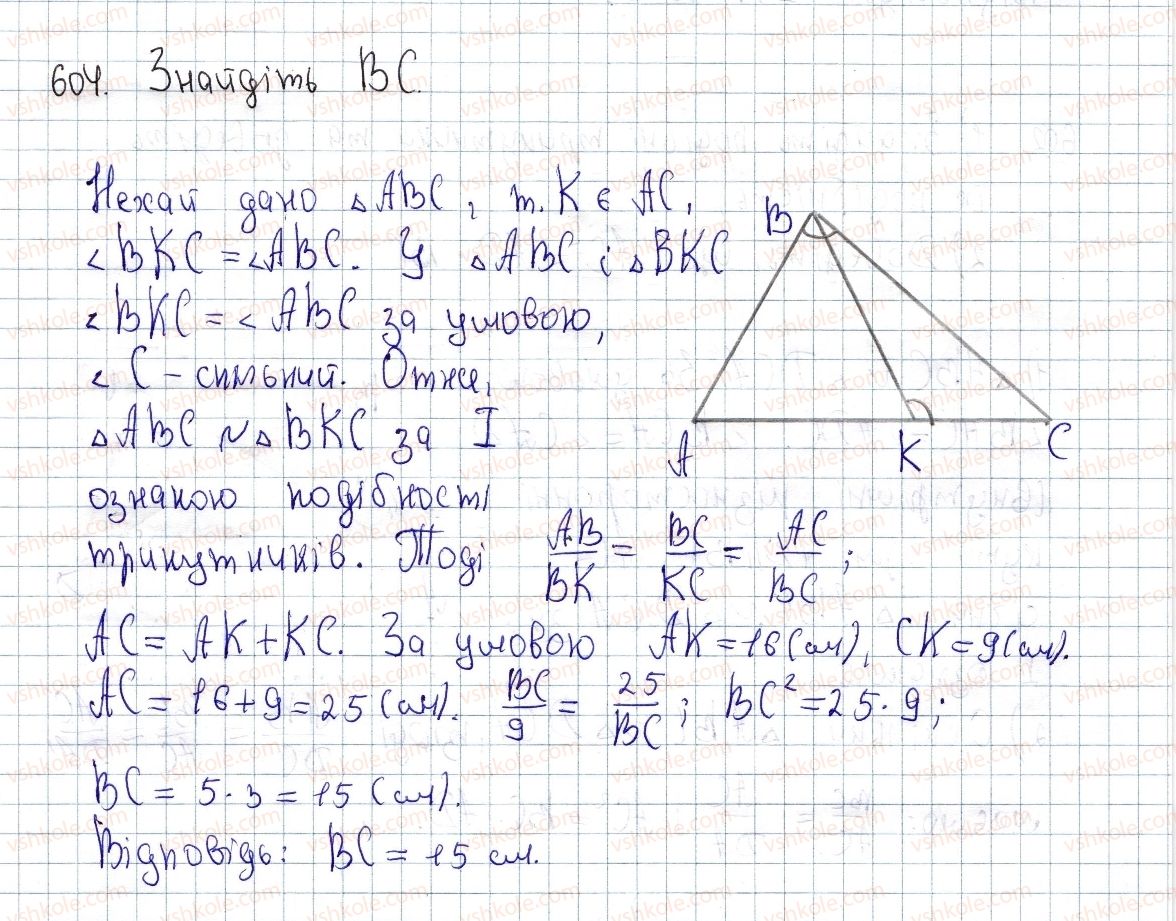 604. Знайдіть BC.
Нехай дано △ABC, т. K є AC,
∠BKC = ∠ABC. У △ABC і △BKC
∠BKC = ∠ABC за умовою,
∠C – спільний. Отже,
△ABC ~ △BKC за I
ознакою подібності
трикутників. Тоді AB/BK = BC/KC = AC/BC;
AC = AK + KC. За умовою AK = 16 (см), CK = 9 (см).
AC = 16 + 9 = 25 (см). BC/9 = 25/BC; BC² = 25 · 9;
BC = 5 · 3 = 15 (см).
Відповідь: BC = 15 см.
B
A
K
C
vshkole.com